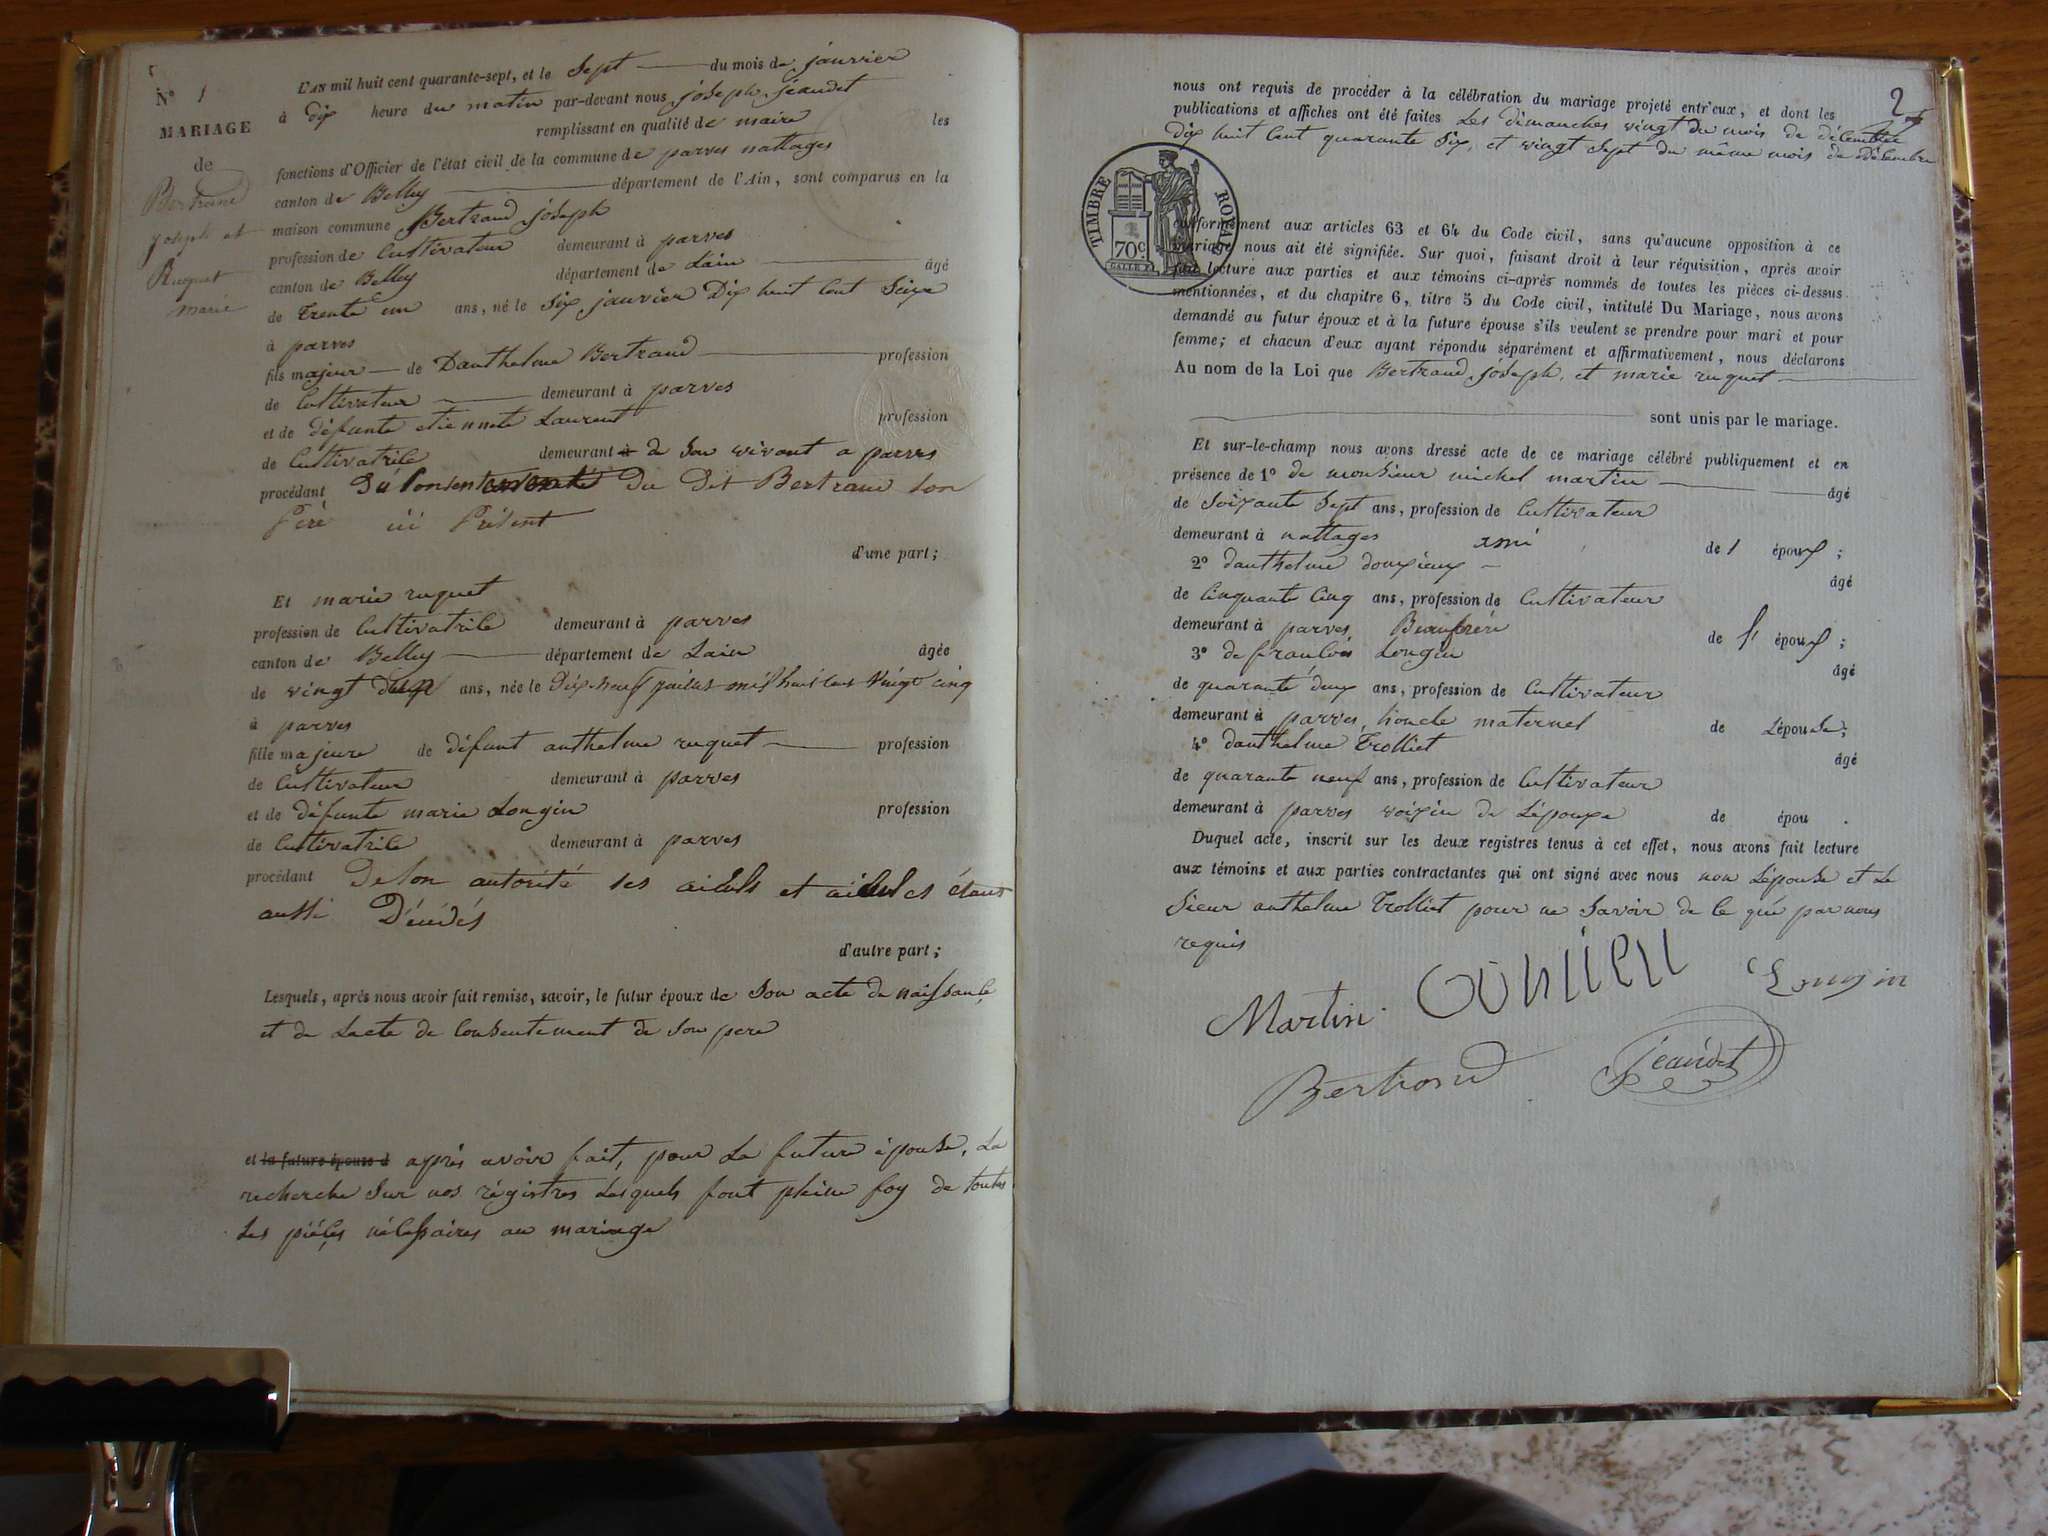 N° 1
MARIAGE
de
Bertrand
joseph et
Ruquet
marie
L'AN mil huit cent quarante-sept, et le Sept du mois de janvier
à dix heure du matin par-devant nous joseph jeandet
remplissant en qualité de maire les
fonctions d'Officier de l'état civil de la commune de parves nattages
canton de Belley département de l'Ain, sont comparus en la
maison commune Bertrand joseph
profession de Cultivateur demeurant à parves
canton de Belley département de Lain âgé
de trente un ans, né le Six janvier Dix huit Cent Seize
à parves
fils majeur de Danthelme Bertrand profession
de Cultivateur demeurant à parves
et de défunte etiennete Laurent profession
de Cultivatrice demeurant à de Son vivant a parves
procédant Du Du Dit Bertrand Son
Père ici Présent
d'une part;
Et marie ruquet
profession de Cultivatrice demeurant à parves
canton de Belley département de Lain âgée
de vingt ans, née le Dix-neuf mil huit cent Vingt cinq
à parves
fille majeure de défunt anthelme ruquet profession
de Cultivateur demeurant à parves
et de défunte marie Longin profession
de Cultivatrice demeurant à parves
procédant De Son autorité ses aieuls et aieules étant
aussi Décédés
d'autre part;
Lesquels, après nous avoir fait remise, savoir, le futur époux de Son acte de naissance
et de Lacte de Consentement de Son pere
et la future épouse d après avoir fait, pour La future épouse, La
recherche Sur nos régistres Lesquels font pleine foy de toutes
Les pièces nécessaires au mariage
2
nous ont requis de procéder à la célébration du mariage projeté entr'eux, et dont les
publications et affiches ont été faites Les dimanches vingt du mois de décembre
Dix huit Cent quarante Six, et vingt Sept du même mois de décembre
TIMBRE ROYAL
70 c.
conformément aux articles 63 et 64 du Code civil, sans qu'aucune opposition à ce
mariage nous ait été signifiée. Sur quoi, faisant droit à leur réquisition, après avoir
fait lecture aux parties et aux témoins ci-après nommés de toutes les pièces ci-dessus
mentionnées, et du chapitre 6, titre 5 du Code civil, intitulé Du Mariage, nous avons
demandé au futur époux et à la future épouse s'ils veulent se prendre pour mari et pour
femme; et chacun d'eux ayant répondu séparément et affirmativement, nous déclarons
Au nom de la Loi que Bertrand joseph, et marie ruquet
sont unis par le mariage.
Et sur-le-champ nous avons dressé acte de ce mariage célébré publiquement et en
présence de 1° de monsieur michel martin âgé
de Soixante Sept ans, profession de Cultivateur
demeurant à nattages ami de l époux;
2° danthelme douxieux âgé
de Cinquante Cinq ans, profession de Cultivateur
demeurant à parves, Beaufrère de l' époux;
3° de francois Longin âgé
de quarante deux ans, profession de Cultivateur
demeurant à parves, honcle maternel de Lépouse;
4° danthelme trolliet âgé
de quarante neuf ans, profession de Cultivateur
demeurant à parves voizin de Lépouze de épou .
Duquel acte, inscrit sur les deux registres tenus à cet effet, nous avons fait lecture
aux témoins et aux parties contractantes qui ont signé avec nous non Lépouse et Le
Sieur anthelme trolliet pour ne Savoir de ce que par nous
requis
Martin Longin
Bertrand jeandet